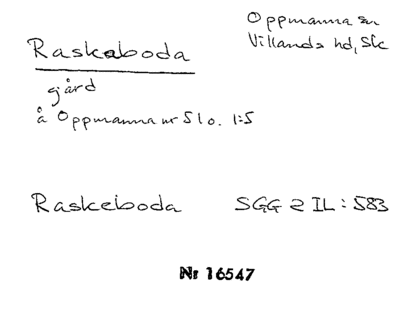 Oppmanna sn
Villands hd, Sk
Raskaboda
gård
å Oppmanna nr 51 o. 1:5
Raskeboda SGG 2 IL: 583
Nr 16547